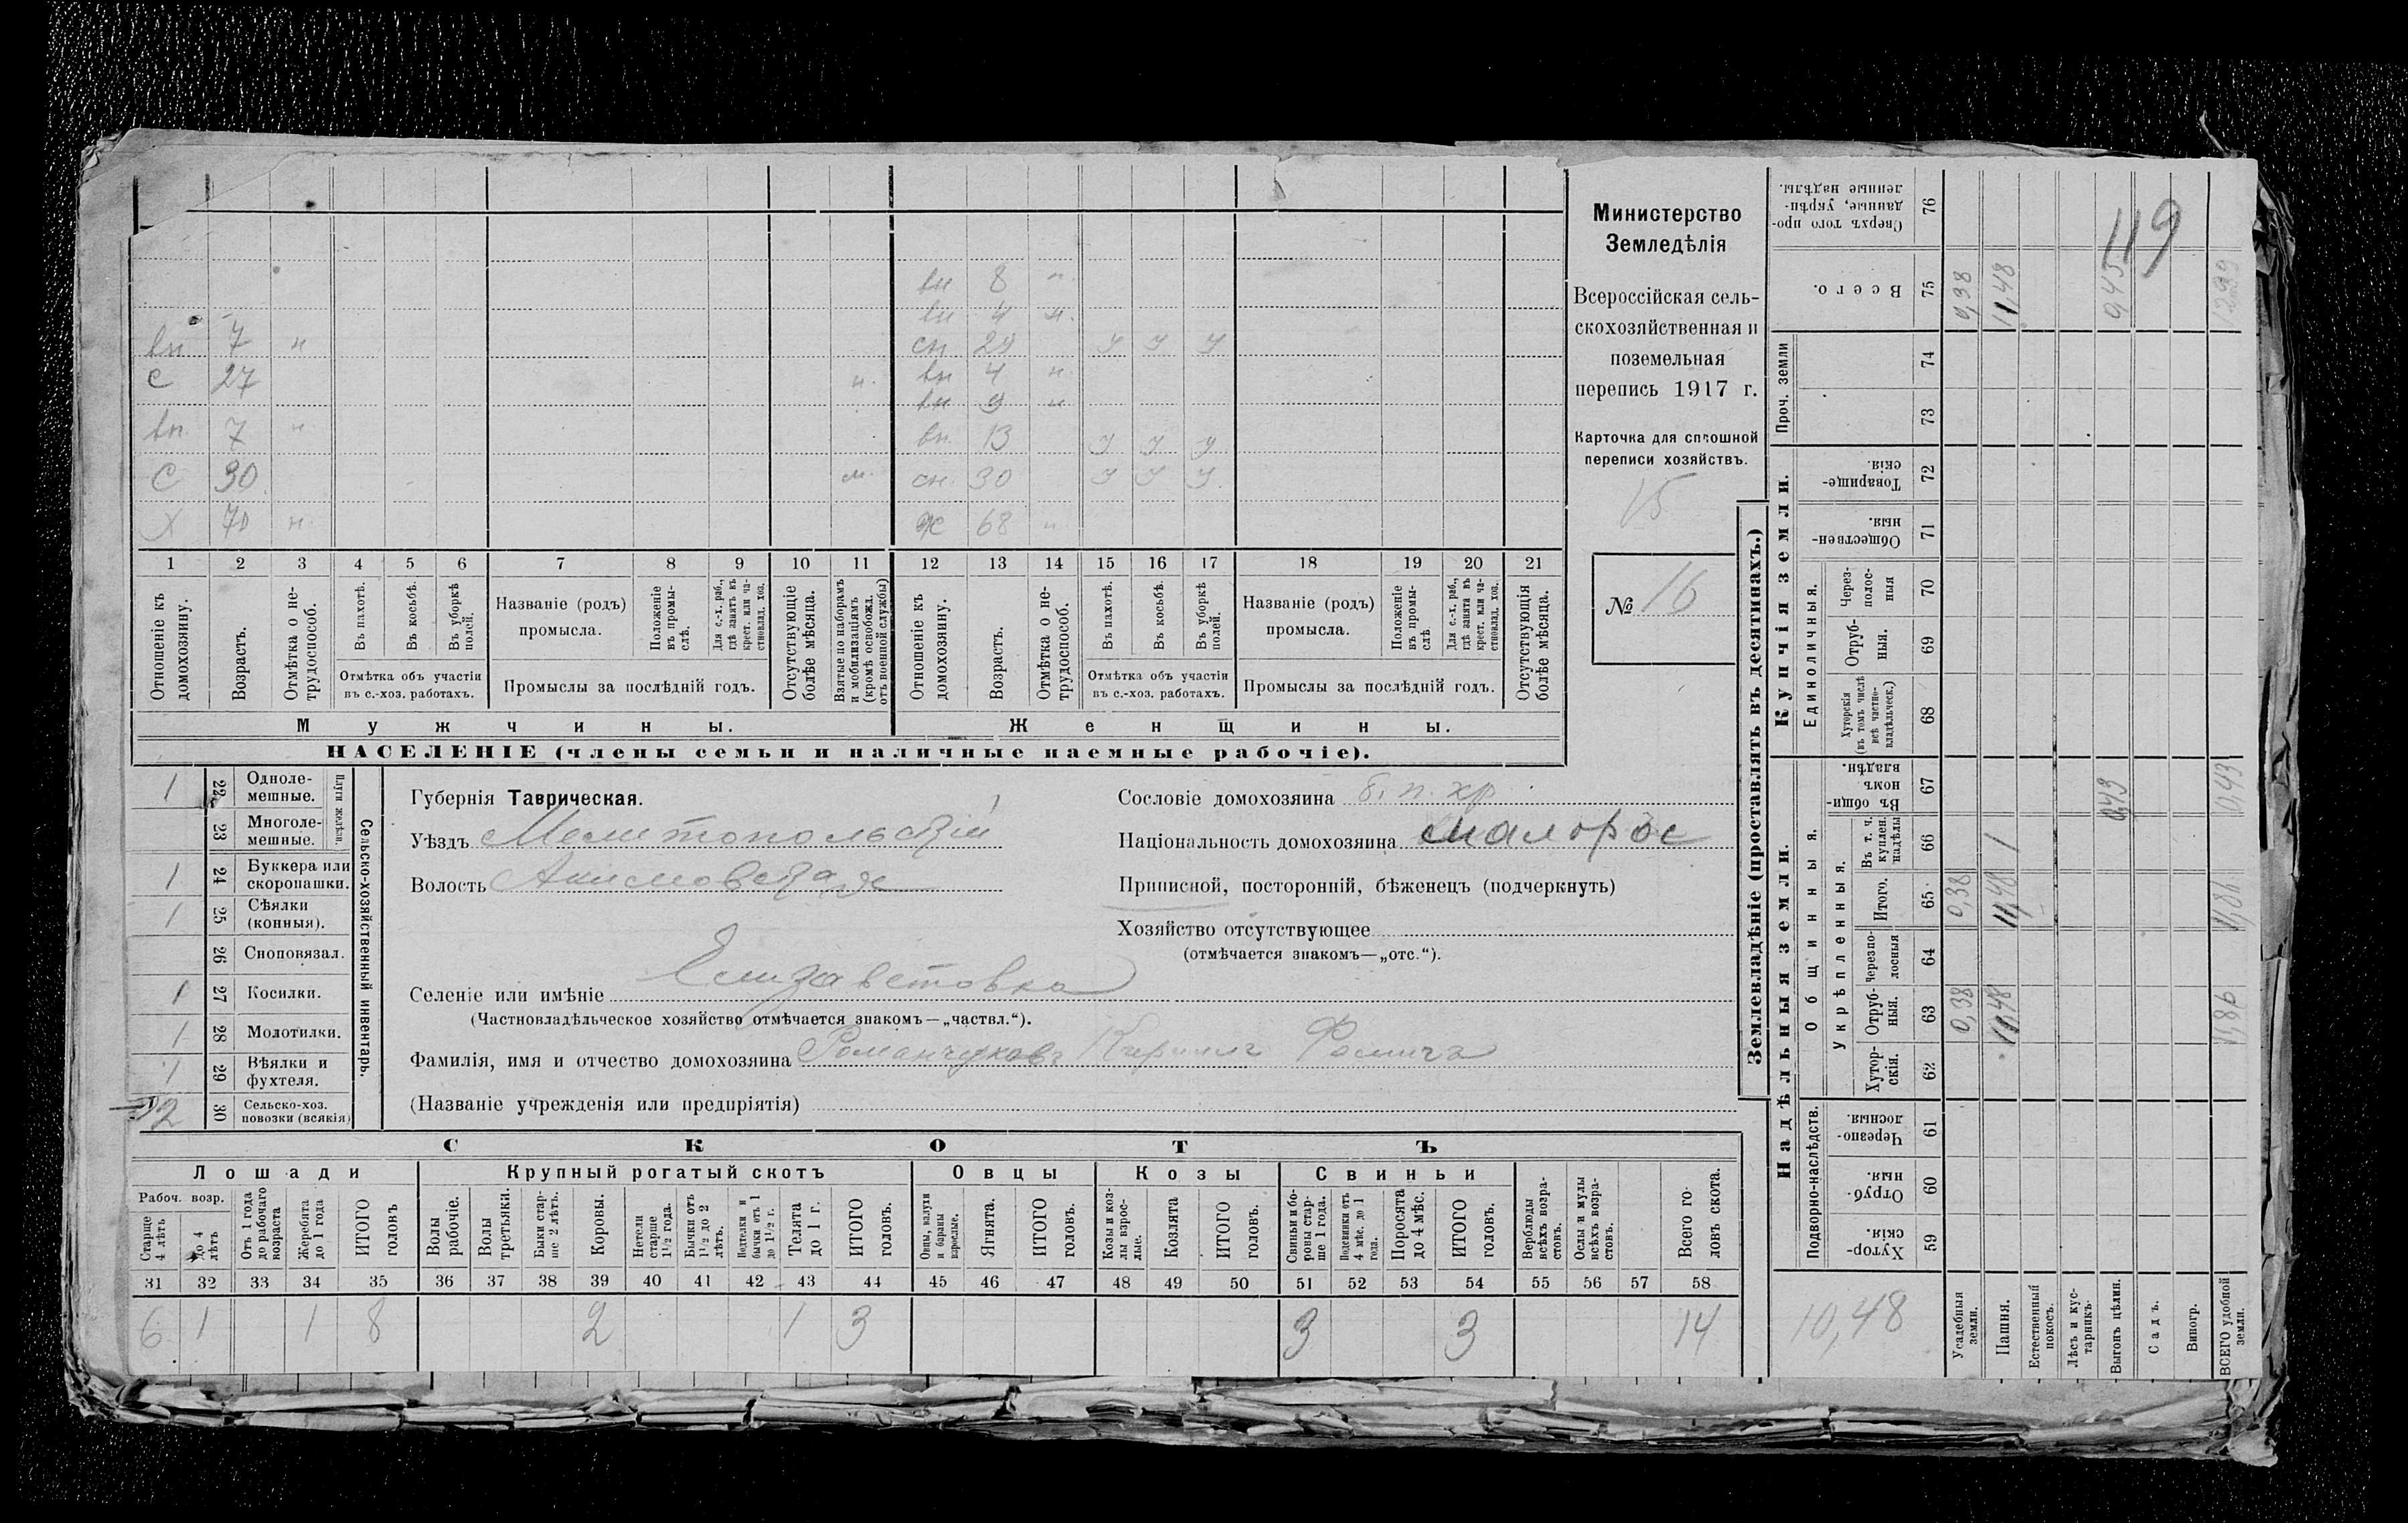 вн 8 н
вн 4 н.
вн 7 н сн 29 У У У
С 27 н. вн 4 н
вн 9 н
вн. 7 н вн. 13 У У У
С 30 м. сн. 30 У У У
Х 70 н. ж 68 н
1 2 3 4 5 6 7 8 9 10 11 12 13 14 15 16 17 18 19 20 21
Отношеніе къ домохозяину.
Возрастъ.
Отмѣтка о не-трудоспособ.
Въ пахотѣ.
Въ косьбѣ.
Въ уборкѣ полей.
Отмѣтка объ участіи въ с.-хоз. работахъ.
Названіе (родъ) промысла.
Положеніе въ промы-слѣ.
Для с.-х. раб., гдѣ занятъ въ крест. или ча-стновлад. хоз.
Промыслы за послѣдній годъ.
Отсутствующіе болѣе мѣсяца.
Взятые по наборамъ и мобилизаціямъ (кромѣ освобожд. отъ военной службы)
Отношеніе къ домохозяину.
Возрастъ.
Отмѣтка о не-трудоспособ.
Въ пахотѣ.
Въ косьбѣ.
Въ уборкѣ полей.
Отмѣтка объ участіи въ с.-хоз. работахъ.
Названіе (родъ) промысла.
Положеніе въ промы-слѣ
Для с.-х. раб., гдѣ занята въ крест. или ча-стновлад. хоз.
Промыслы за послѣдній годъ.
Отсутствующія болѣе мѣсяца.
Мужчины.
Женщины.
НАСЕЛЕНІЕ (члены семьи и наличные наемные рабочіе).
Министерство
Земледѣлія
Всероссійская сель-
скохозяйственная и
поземельная
перепись 1917 г.
Карточка для сплошной
переписи хозяйствъ.
15
№ 16
1 22 Одноле-мешные.
23 Многоле-мешные.
Плуги желѣзн.
1 24 Буккера или скоропашки.
1 25 Сѣялки (конныя).
26 Сноповязал.
1 27 Косилки.
1 28 Молотилки.
1 29 Вѣялки и фухтеля.
2 30 Сельско-хоз. повозки (всякія)
Сельско-хозяйственный инвентарь.
Губернія Таврическая.
Уѣздъ Мелитопольскій
Волость Акимовская
Селеніе или имѣніе Елизаветовка
(Частновладѣльческое хозяйство отмѣчается знакомъ—„частвл.“).
Фамилія, имя и отчество домохозяина Романчуковъ Кириллъ Фомичъ
(Названіе учрежденія или предпріятія)
Сословіе домохозяина б. п. хр
Національность домохозяина малорос
Приписной, посторонній, бѣженецъ (подчеркнуть)
Хозяйство отсутствующее
(отмѣчается знакомъ—„отс.“).
СКОТЪ
Лошади Крупный рогатый скотъ Овцы Козы Свиньи
Рабоч. возр.
Старше 4 лѣтъ
до 4 лѣтъ
Отъ 1 года до рабочаго возраста
Жеребята до 1 года
ИТОГО головъ
Волы рабочіе.
Волы третьяки.
Быки стар-ше 2 лѣтъ.
Коровы.
Нетели старше 1½ года.
Бычки отъ 1½ до 2 лѣтъ.
Нетелки и бычки отъ 1 до 1½ г.
Телята до 1 г.
ИТОГО головъ.
Овцы, валухи и бараны взрослые.
Ягнята.
ИТОГО головъ.
Козы и коз-лы взрос-лые.
Козлята
ИТОГО головъ.
Свиньи и бо-ровы стар-ше 1 года.
Подсвинки отъ 4 мѣс. до 1 года.
Поросята до 4 мѣс.
ИТОГО головъ.
Верблюды всѣхъ возра-стовъ.
Ослы и мулы всѣхъ возра-стовъ.
Всего го-ловъ скота.
31 32 33 34 35 36 37 38 39 40 41 42 43 44 45 46 47 48 49 50 51 52 53 54 55 56 57 58
6 1 1 8 2 1 3 3 3 14
Землевладѣніе (проставлять въ десятинахъ.)
Купчія земли.
Надѣльныя земли.
Сверхъ того про-данные, укрѣп-ленные надѣлы. 76
119
Всего. 75 0,38 11,48 0,43 12,29
Проч. земли 74 73
Товарище-скія. 72
Обществен-ныя. 71
Единоличныя.
Через-полос-ныя 70
Отруб-ныя. 69
Хуторскія (въ томъ числѣ всѣ частно-владѣльческ.) 68
Общинныя.
Въ общи-номъ владѣн. 67 0,43 0,43
Укрѣпленныя.
Въ т. ч. куплен. надѣлы 66 1
Итого. 65 0,38 11,48 11,86
Черезпо-лосныя 64
Отруб-ныя. 63 0,38 11,48 11,86
Хутор-скія. 62
Подворно-наслѣдств.
Черезпо-лосныя. 61
Отруб-ныя. 60
Хутор-скія. 59
10,48
Усадебныя земли.
Пашня.
Естественный покосъ.
Лѣсъ и кус-тарникъ.
Выгонъ цѣлин.
Садъ.
Виногр.
ВСЕГО удобной земли.